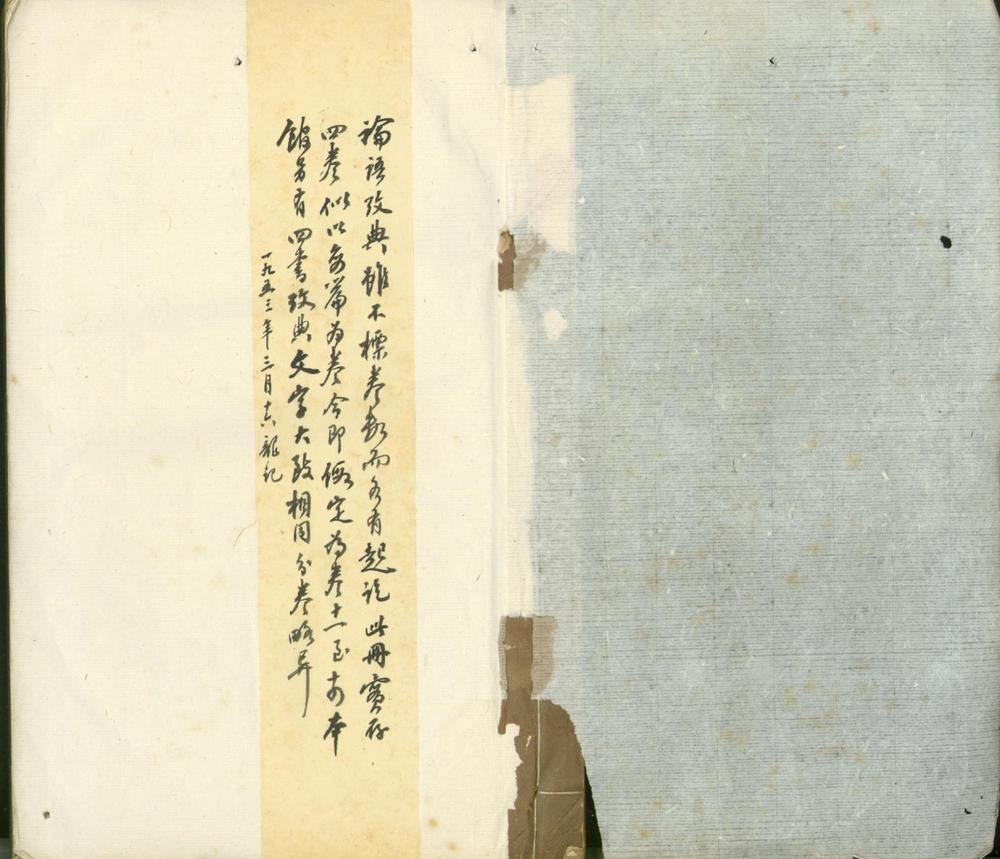 論語攷典雖不標卷数而各有起訖此冊實存
四卷似以每篇为卷今即假定為卷十一至十四本
館另有四書攷典文字大致相同分卷略异
一九五三年三月十六龍記